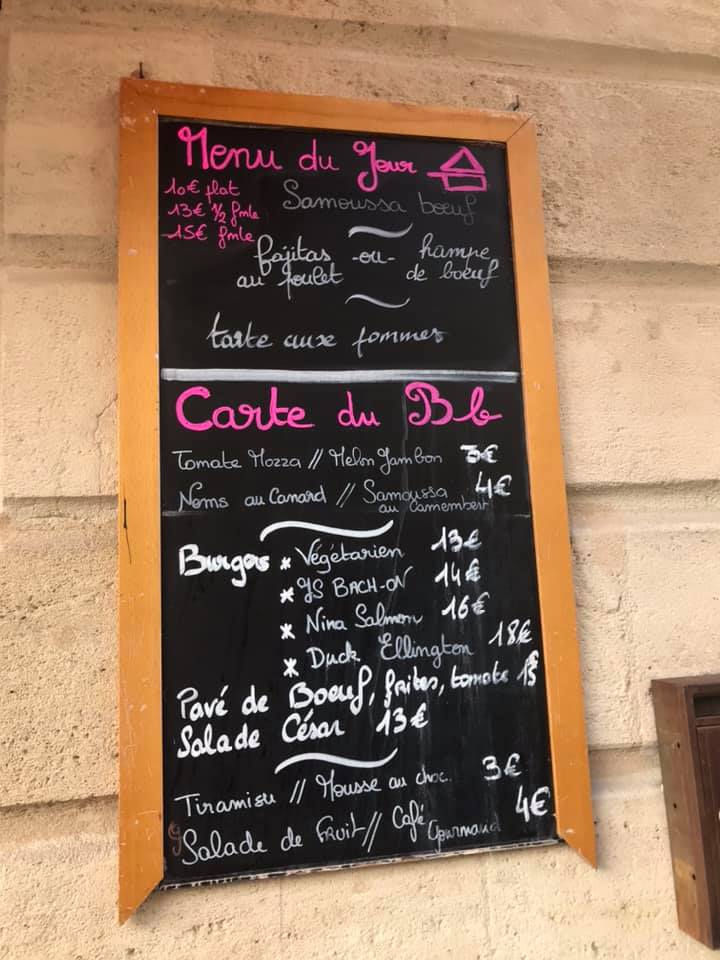 Menu du Jour
10€ plat
13€ 1/2 fmle
15€ fmle
Samoussa boeuf
fajitas au poulet -ou- hampe de boeuf
tarte aux pommes
Carte du Bb
Tomate Mozza // Melon Jambon 3€
Nems au Canard // Samoussa au Camembert 4€
Burgers * Végétarien 13€
* JS BACH-ON 14€
* Nina Salmon 16€
* Duck Ellington 18€
Pavé de Boeuf, frites, tomate 15€
Salade César 13€
Tiramisu // Mousse au choc. 3€
Salade de Fruit // Café Gourmand 4€